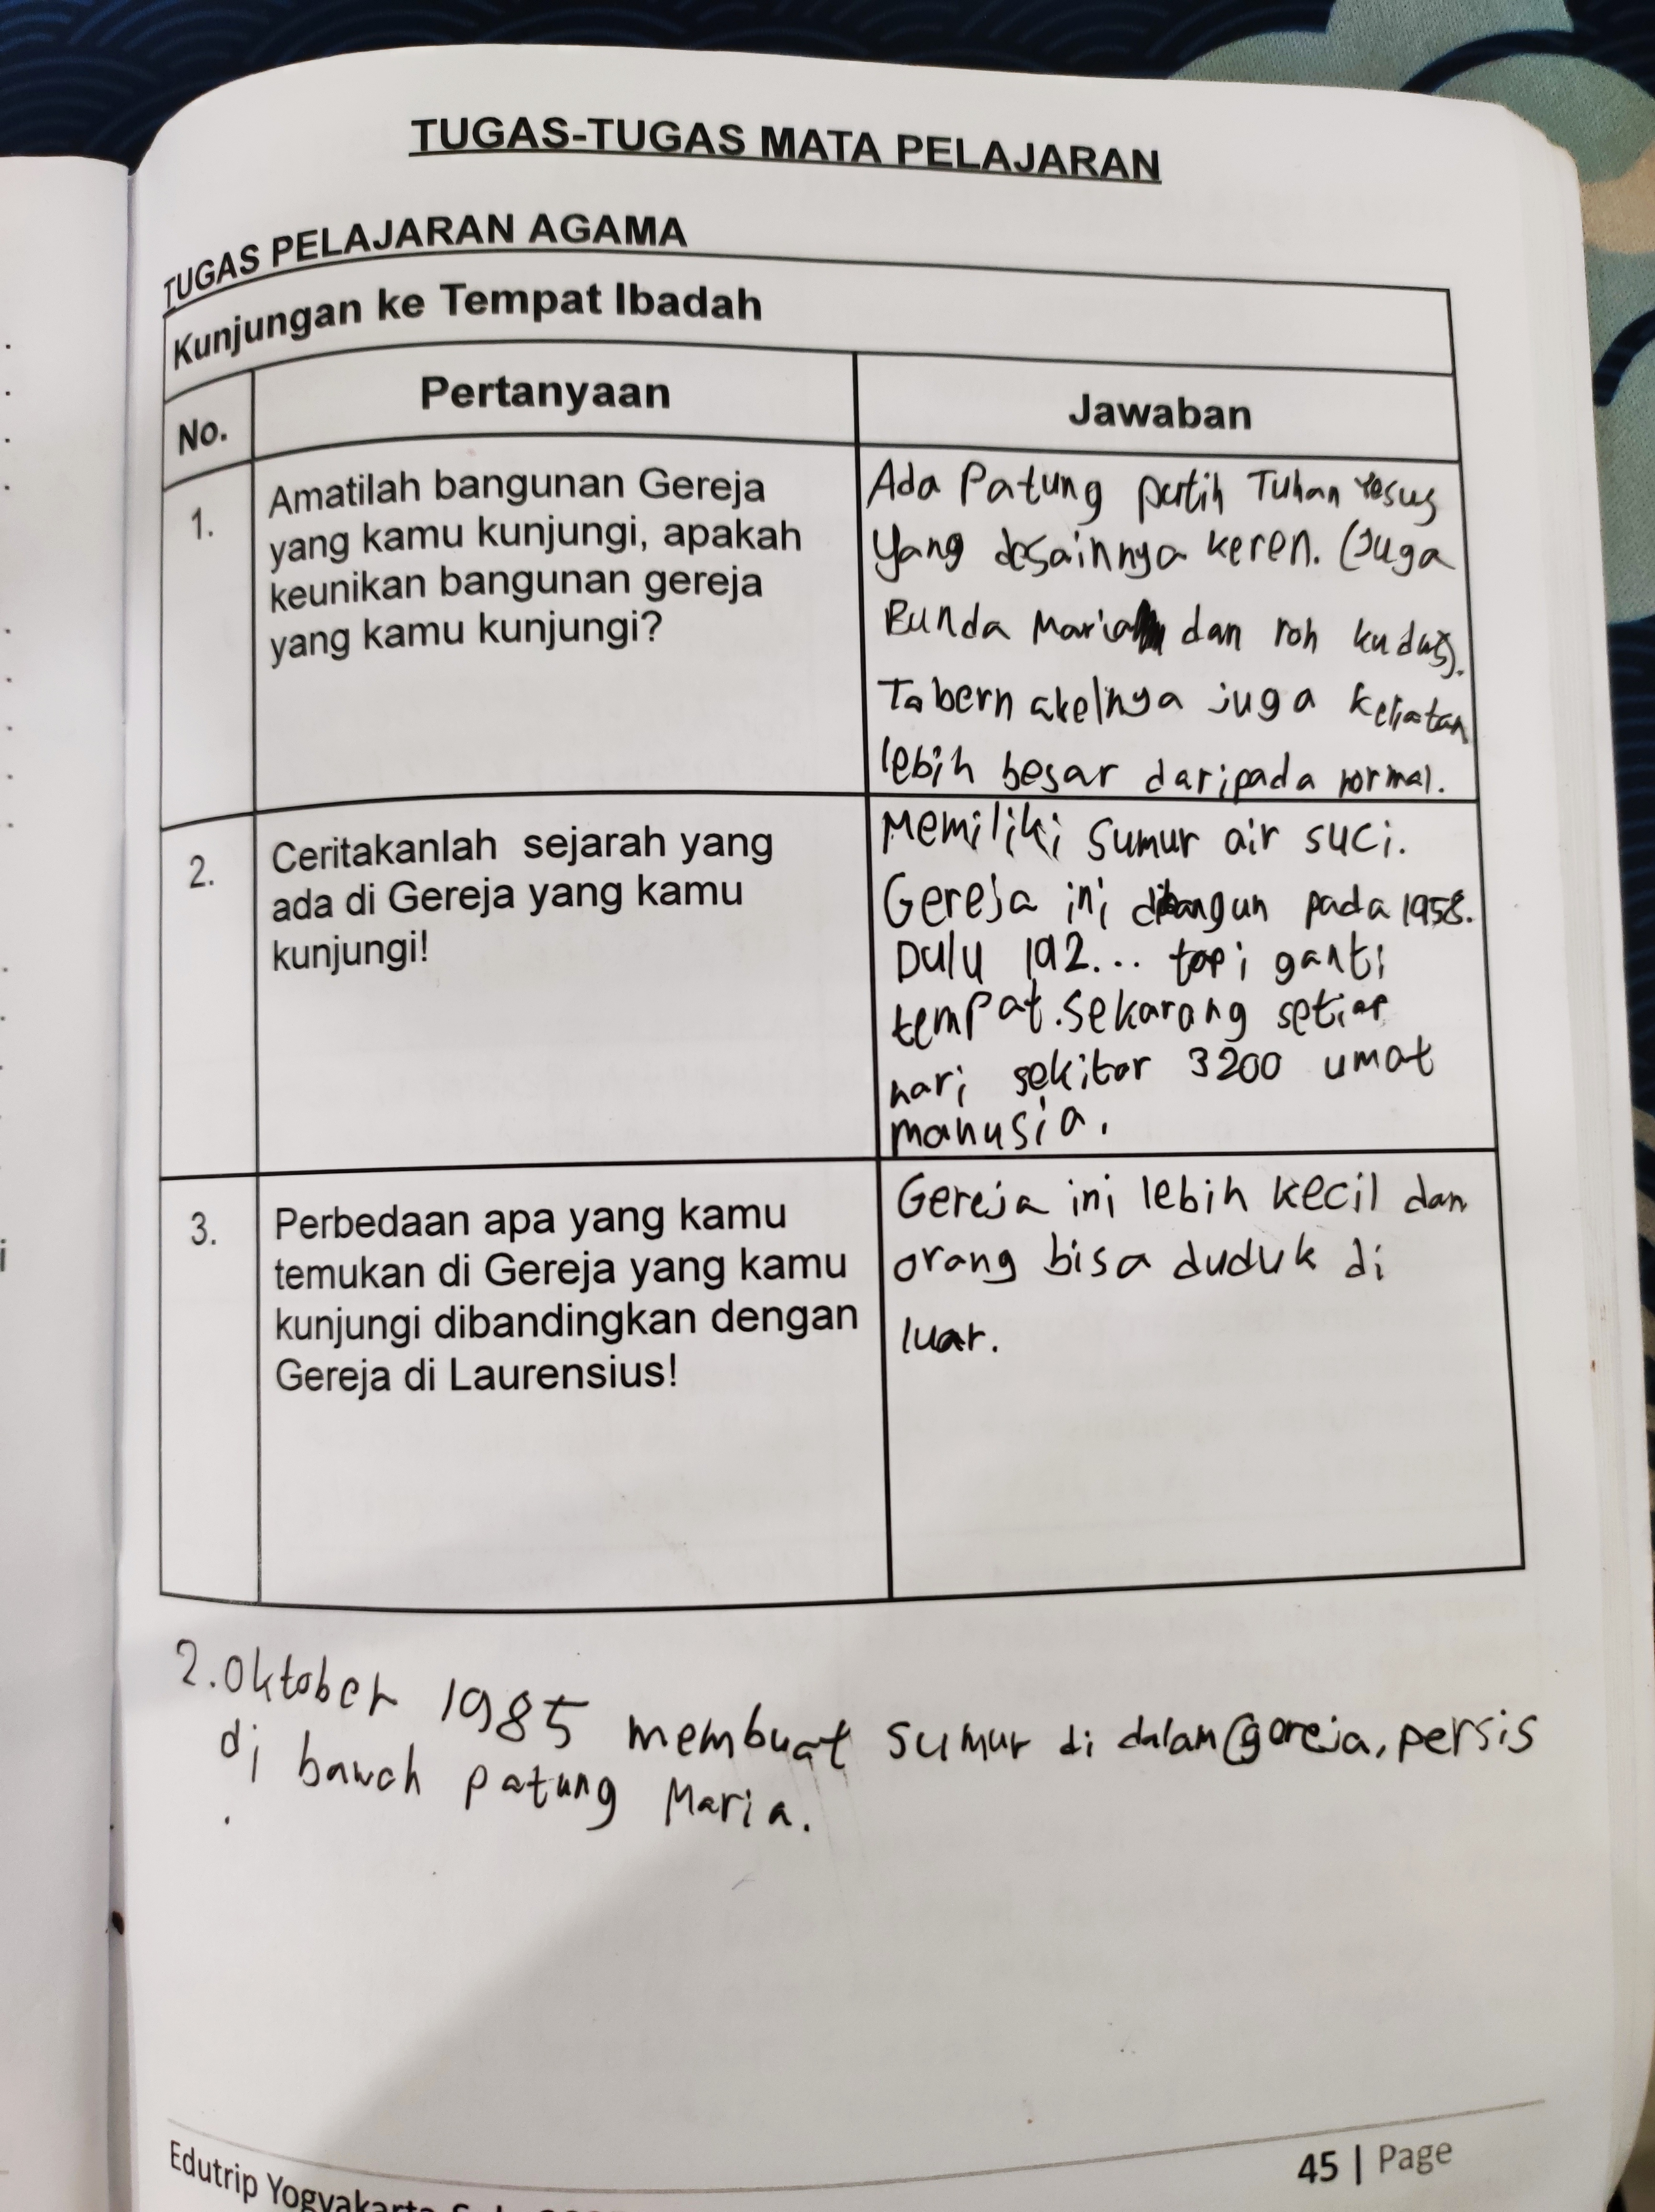 TUGAS-TUGAS MATA PELAJARAN
TUGAS PELAJARAN AGAMA
Kunjungan ke Tempat Ibadah
No.
Pertanyaan
Jawaban
1.
Amatilah bangunan Gereja
yang kamu kunjungi, apakah
keunikan bangunan gereja
yang kamu kunjungi?
Ada Patung putih Tuhan Yesus
yang desainnya keren. (Juga
Bunda Maria dan roh kudus).
Tabernakelnya juga keliatan
lebih besar daripada normal.
2.
Ceritakanlah sejarah yang
ada di Gereja yang kamu
kunjungi!
Memiliki sumur air suci.
Gereja ini dibangun pada 1958.
Dulu 192... tapi ganti
tempat. Sekarang setiap
hari sekitar 3200 umat
manusia.
3.
Perbedaan apa yang kamu
temukan di Gereja yang kamu
kunjungi dibandingkan dengan
Gereja di Laurensius!
Gereja ini lebih kecil dan
orang bisa duduk di
luar.
2. Oktober 1985 membuat sumur di dalam gereja, persis
di bawah patung Maria.
Edutrip Yogyakarta
45 | Page